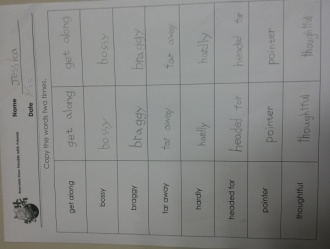 Name Jessica
Date
Copy the words two times.
get along get along get along
bossy bossy bossy
braggy braggy braggy
far away far away far away
hardly hardly hardly
headed for headed for headed for
pointer pointer pointer
thoughtful thoughtful thoughtful